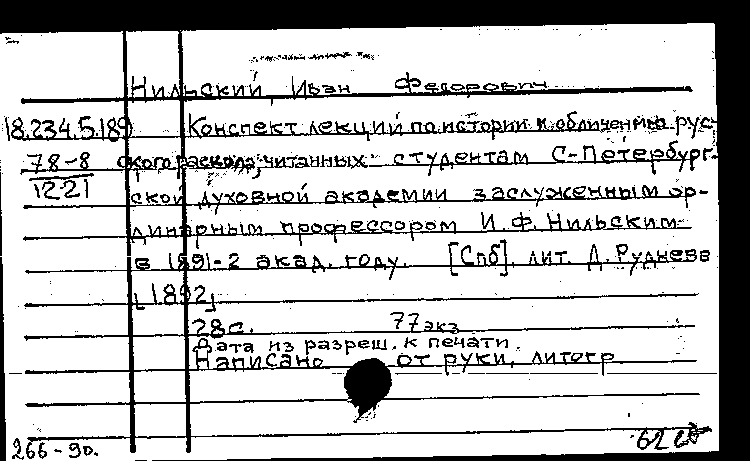 Нильский, Иван Федорович
18.234.5.189 Конспект лекций по истории и обличению рус-
78-8 ского раскола, читанных студентам С-Петербург-
1221 ской духовной академии заслуженным ор-
динарным профессором И. Ф. Нильским
в 1891-2 акад. году. [Спб]. лит. Д. Руднева
[1892]
28с. 77экз
Дата из разреш. к печати.
Написано от руки, литогр
266-90.